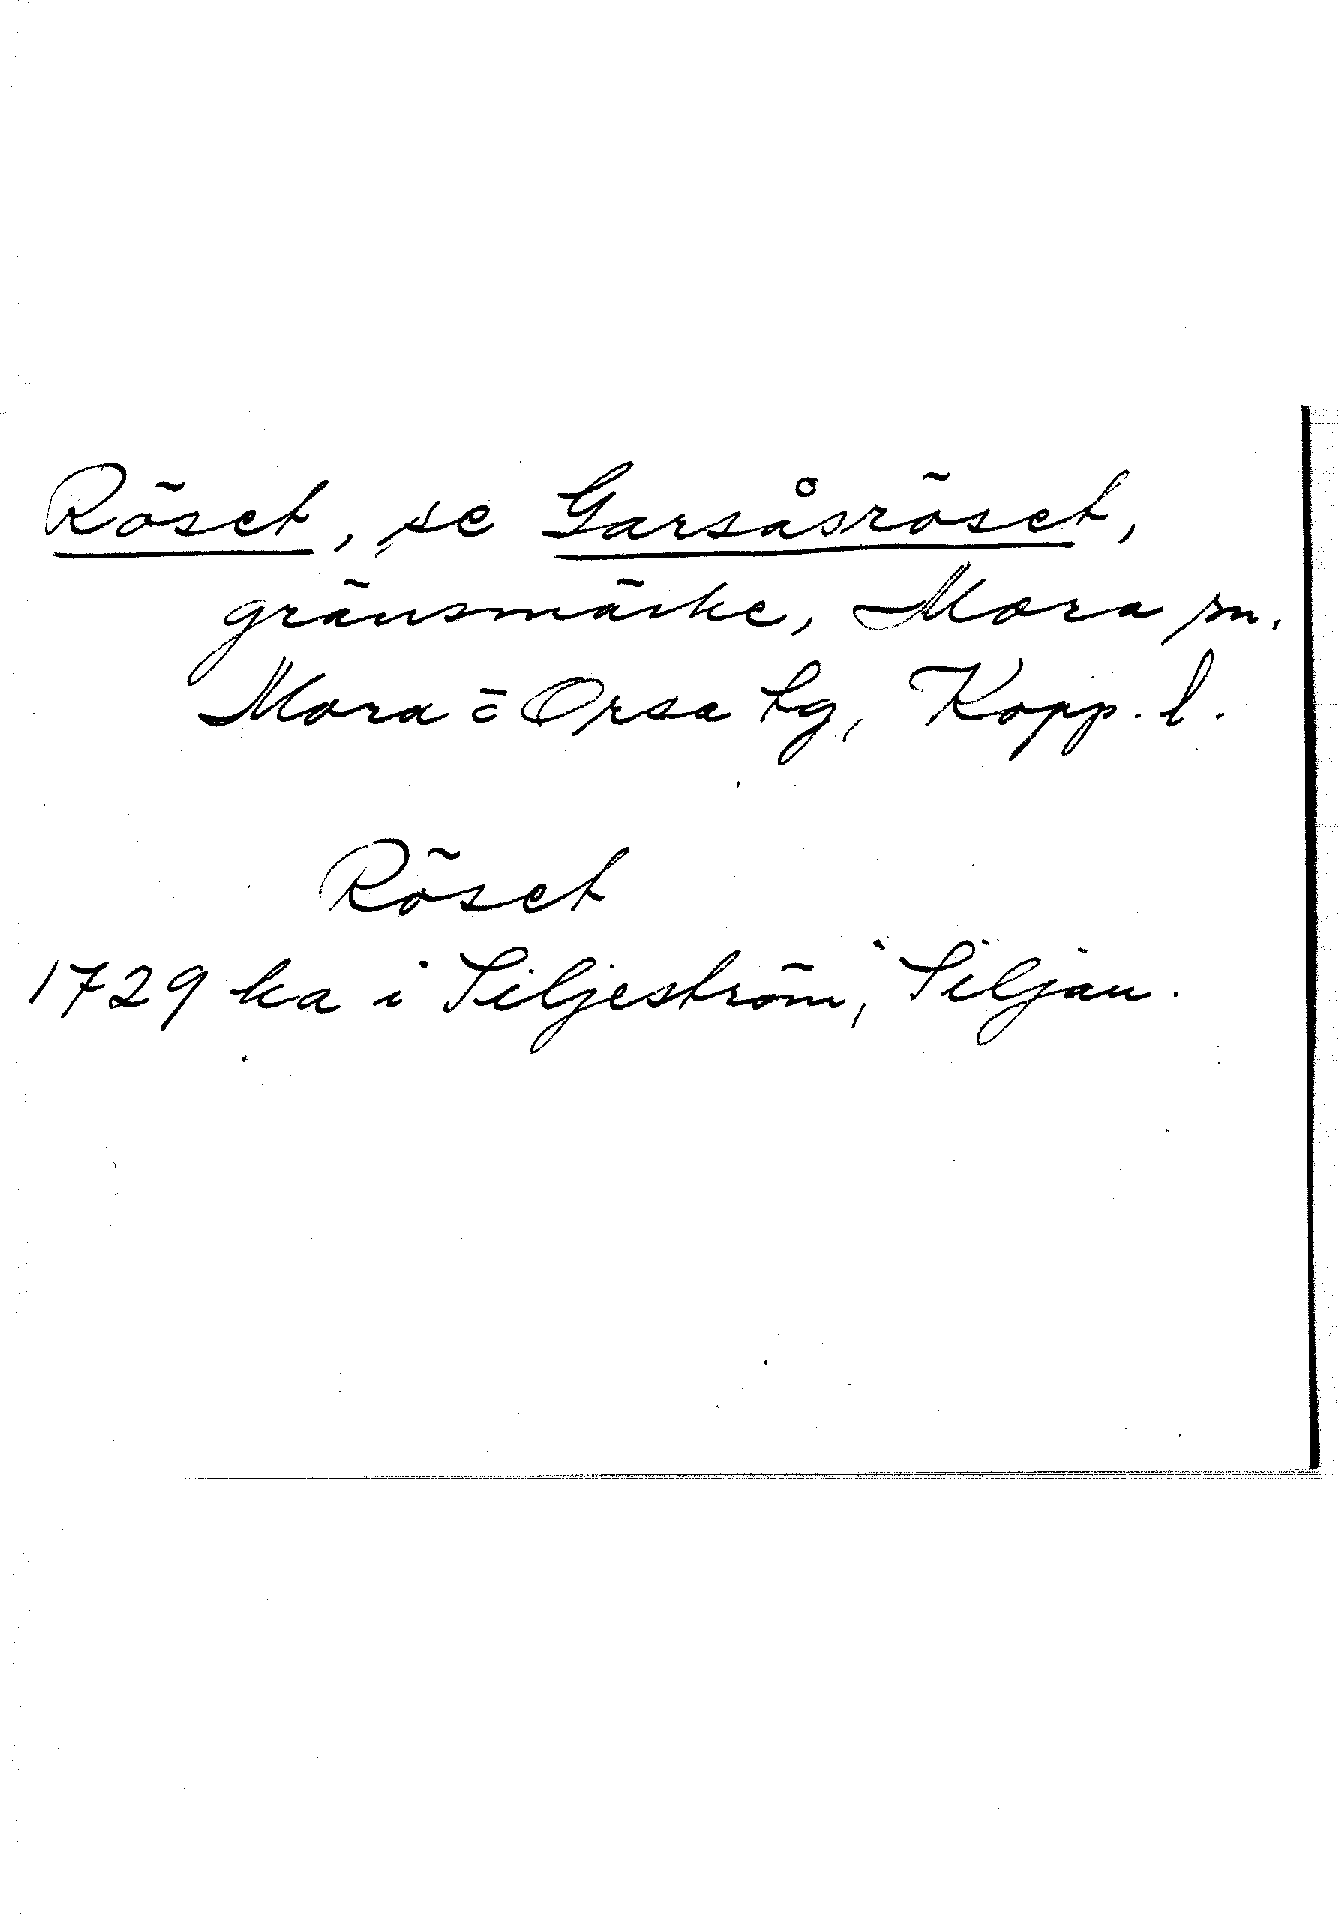 Röset, se Garsåsröset,
gränsmärke, Mora sn.
Mora o Orsa tg, Kopp. l.
Röset
1729 ka i Siljeström, Siljan.